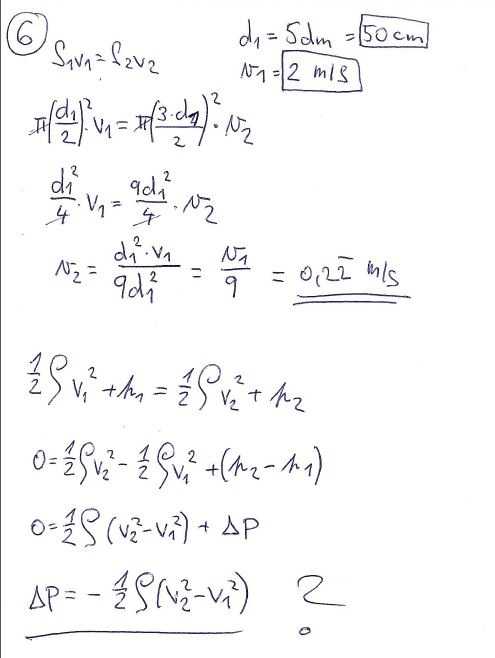 6
d₁ = 5dm = 50 cm
S₁v₁ = S₂v₂
v₁ = 2 m/s
π(d₁/2)² · v₁ = π(3·d₁/2)² · v₂
d₁²/4 · v₁ = 9d₁²/4 · v₂
v₂ = d₁²·v₁/9d₁² = v₁/9 = 0,22̅ m/s
1/2 ρ v₁² + p₁ = 1/2 ρ v₂² + p₂
0 = 1/2 ρv₂² - 1/2 ρv₁² + (p₂ - p₁)
0 = 1/2 ρ (v₂² - v₁²) + ΔP
ΔP = - 1/2 ρ(v₂² - v₁²) ?